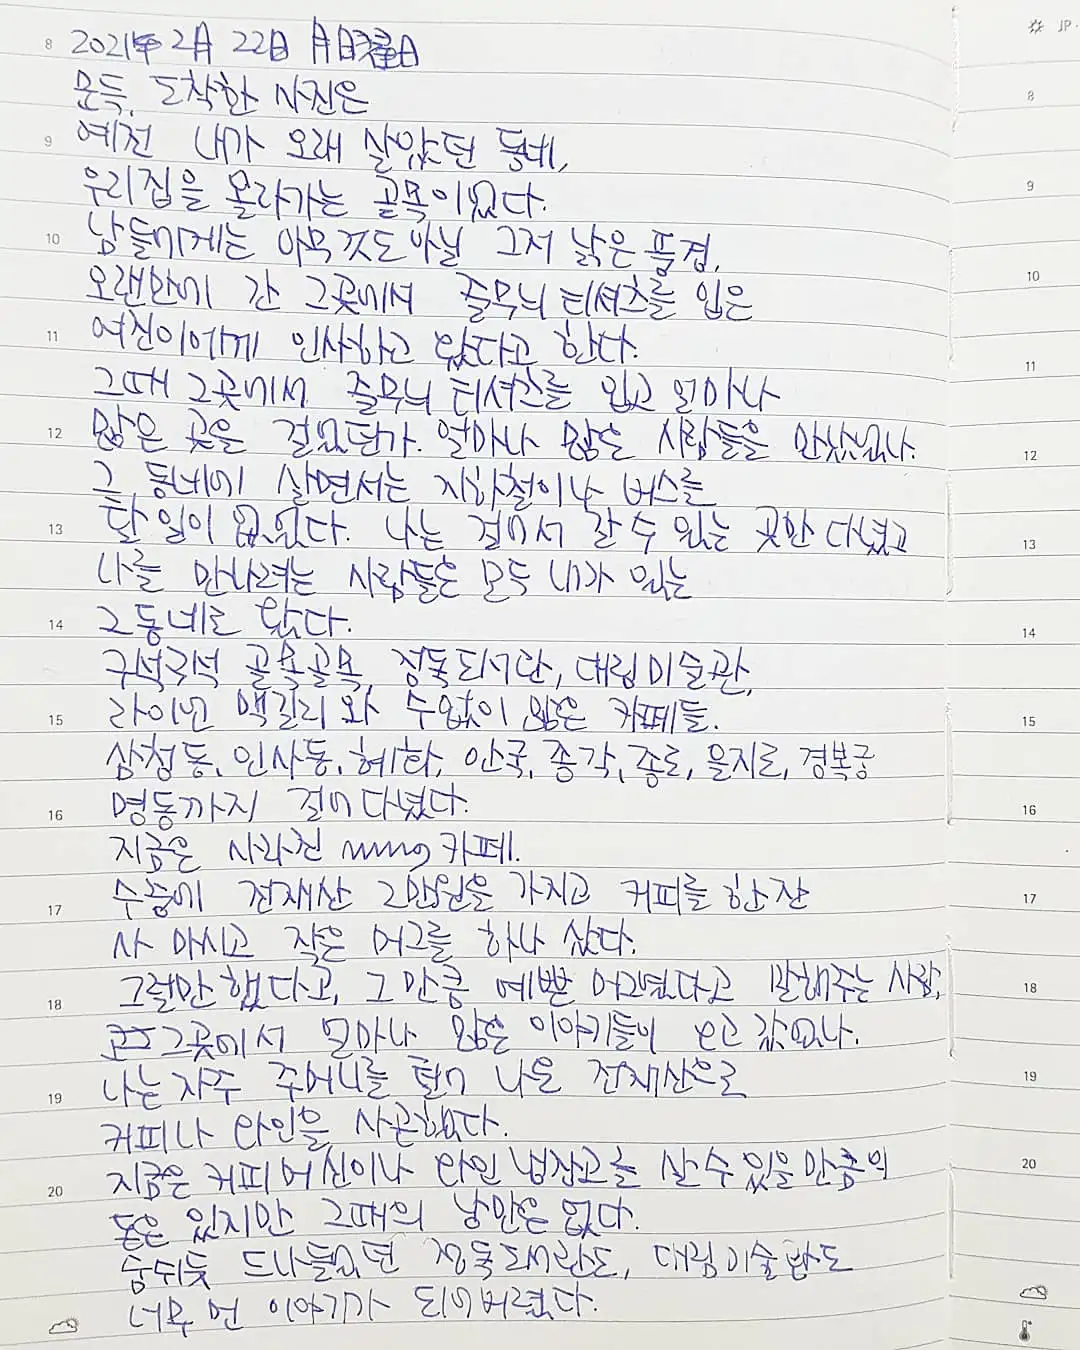 2021年 2月 22日 月曜日
문득, 도착한 사진은
예전 내가 오래 살았던 동네,
우리집을 올라가는 골목이었다.
남들에게는 아무것도 아닐 그저 낡은 풍경,
오랜만에 간 그곳에서 줄무늬 티셔츠를 입은
여진이에게 인사하고 왔다고 한다.
그때 그곳에서 줄무늬 티셔츠를 입고 얼마나
많은 곳을 걸었던가. 얼마나 많은 사람들을 만났었나.
그 동네에 살면서는 지하철이나 버스를
탈 일이 없었다. 나는 걸어서 갈 수 있는 곳만 다녔고
나를 만나려는 사람들은 모두 내가 있는
그 동네로 왔다.
구석구석 골목골목, 정독도서관, 대림미술관,
라이넌 맥길리와 수없이 많은 카페들.
삼청동, 인사동, 혜화, 안국, 종각, 종로, 을지로, 경복궁
명동까지 걸어다녔다.
지금은 사라진 mmg 카페.
수중에 전재산 2만원을 가지고 커피를 한 잔
사 마시고 작은 머그를 하나 샀다.
그럴만 했다고, 그만큼 예쁜 머그였다고 말해주는 사람,
그곳에서 얼마나 많은 이야기들이 오고 갔었나.
나는 자주 주머니를 털어 나온 전재산으로
커피나 와인을 사곤했다.
지금은 커피머신이나 와인 냉장고를 살 수 있을 만큼의
돈은 있지만 그때의 낭만은 없다.
숨쉬듯 드나들었던 정독도서관도, 대림미술관도
너무 먼 이야기가 되어버렸다.
8
9
10
11
12
13
14
15
16
17
18
19
20
JP
8
9
10
11
12
13
14
15
16
17
18
19
20